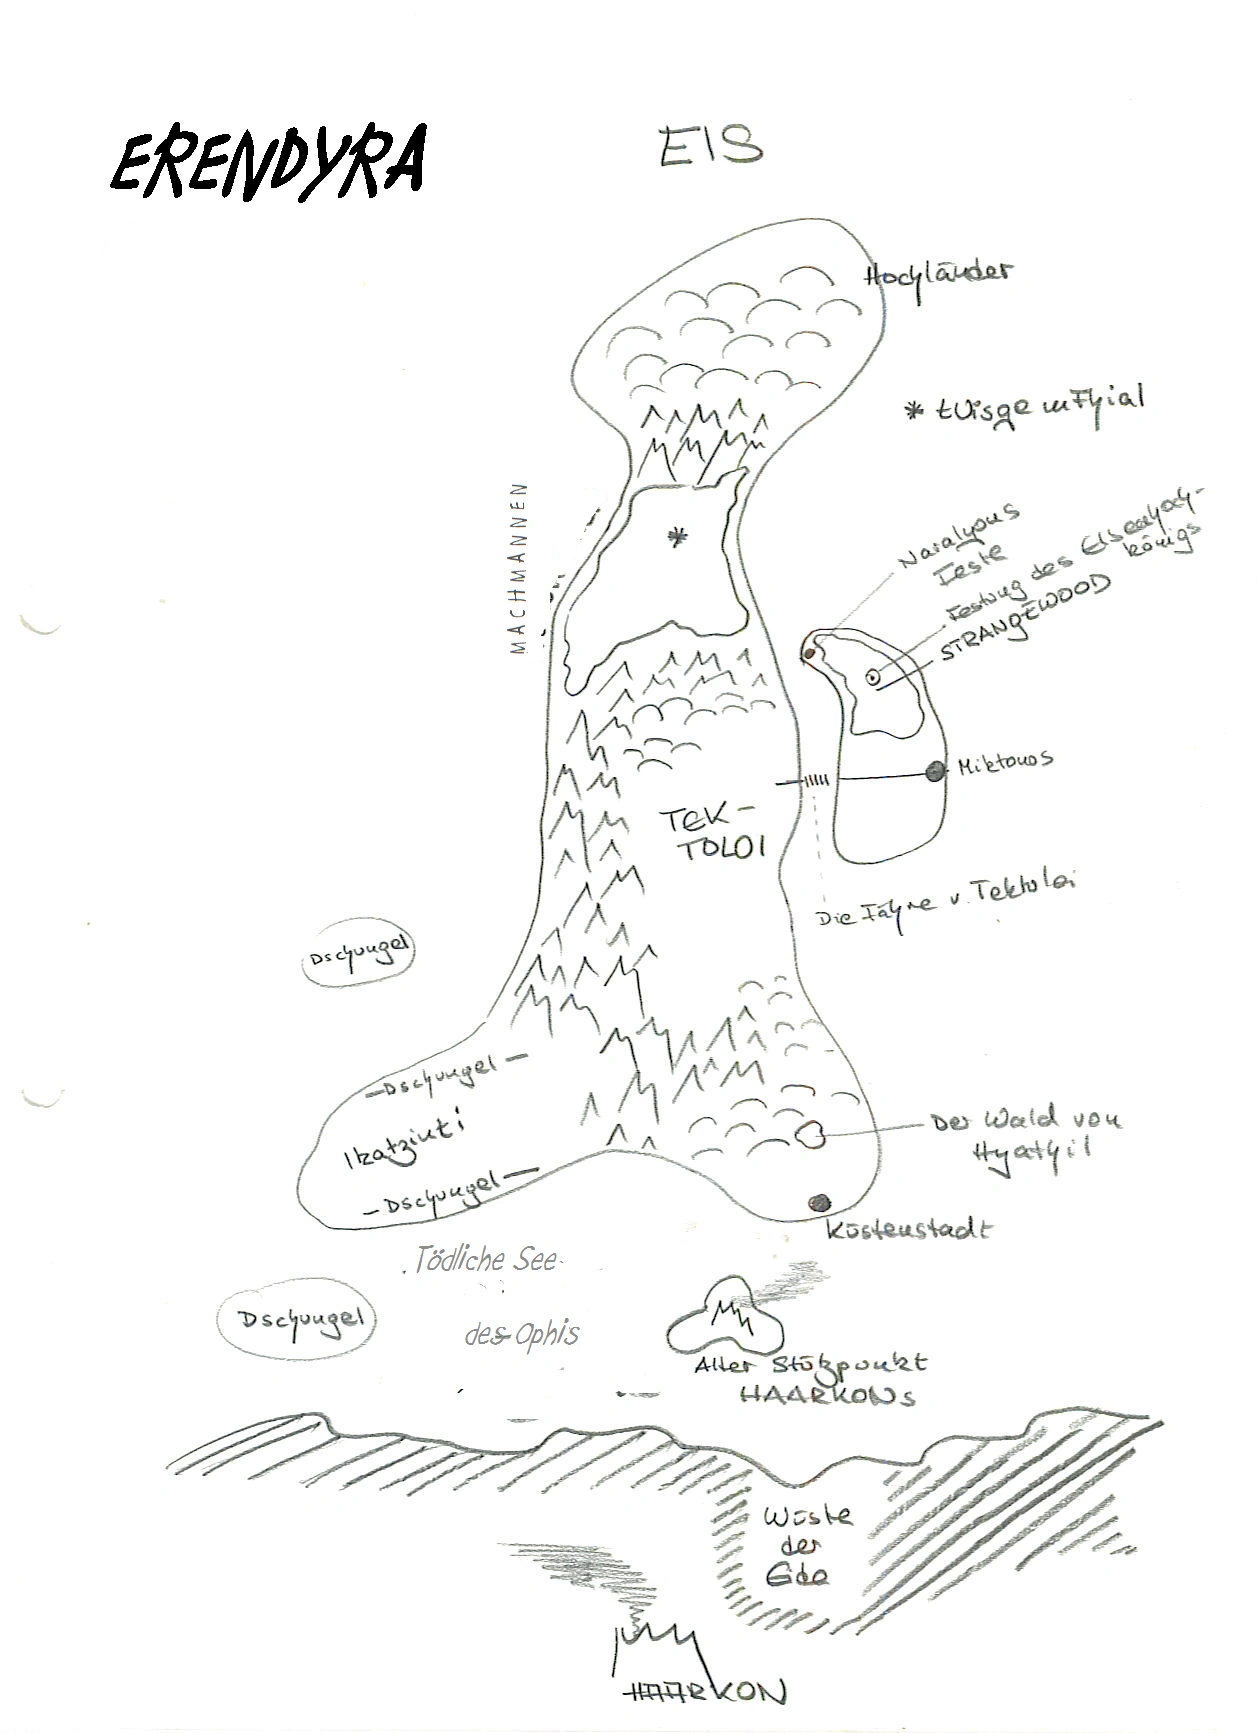 ERENDYRA
EIS
Hochländer
MACHMANNEN
Naralyons
Feste
Festung des Elsenhoch-
königs
STRANGEWOOD
Miktonos
TEK-
TOLOI
Die Fähre v. Tektoloi
Dschungel
-Dschungel-
Ikatzinti
-Dschungel-
Der Wald von
Hyathil
Küstenstadt
Tödliche See
des Ophis
Dschungel
Alter Stützpunkt
HAARKONs
Wüste
der
HAARKON